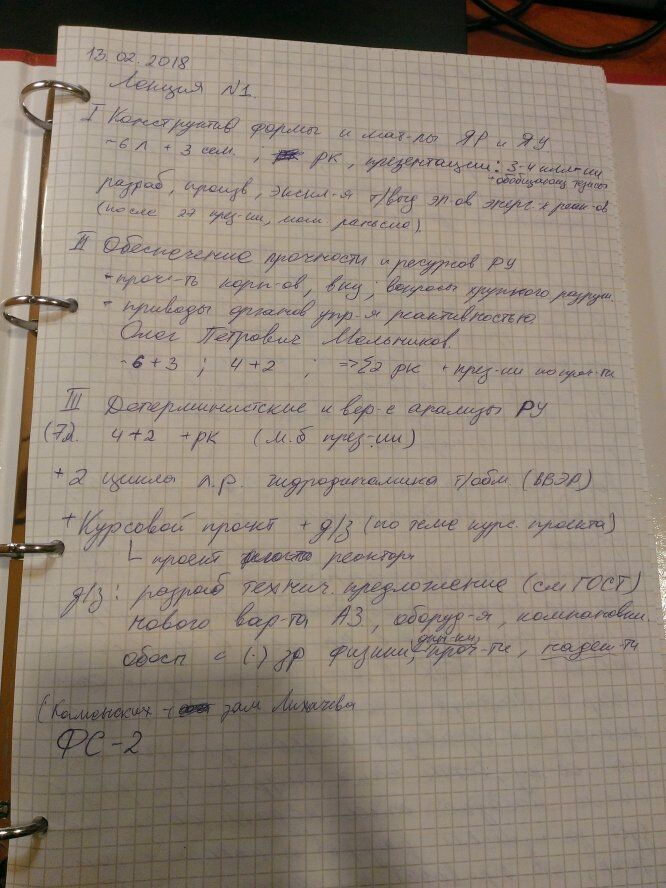 13.02.2018
Лекция №1.
I Конструктив формы и мат-лы ЯР и ЯУ
~6 л + 3 сем., рк, презентации: 3-4 илл-ии
+ обобщающ тезисы
разраб, произв, экспл-я т/выд эл-ов энерг-х реак-ов
(после 27 през-ии, мат. раньше).
II Обеспечение прочности и ресурсов РУ
- проч-ть корп-ов, вку; вопросы хрупкого разруш.
- приводы органов упр-я реактивностью.
Олег Петрович Мельников.
~6+3 ; 4+2 ; => Σ2 рк + през-ии по проч-ти
III Детерминистские и вер-е анализы РУ
(7л). 4+2 +рк (м.б през-ии)
+2 цикла л.р. гидродинамика т/обм (ВВЭР)
+ Курсовой проект + д/з (по теме курс. проекта)
проект реактора
д/з: разраб технич. предложение (см ГОСТ)
нового вар-та АЗ, оборуд-я, компановки.
обосн с (·) зр физики, проч-ти, надеж-ти
(Каменских - зам Лихачева
ФС-2